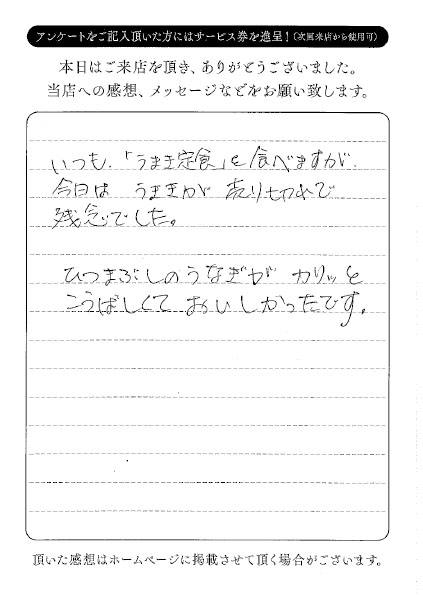 アンケートをご記入頂いた方にはサービス券を進呈！（次回来店から使用可）
本日はご来店を頂き、ありがとうございました。
当店への感想、メッセージなどをお願い致します。
いつも、「うまき定食」を食べますが、
今日は うまきが 売り切れで
残念でした。
ひつまぶしのうなぎが カリッと
こうばしくて おいしかったです。
頂いた感想はホームページに掲載させて頂く場合がございます。